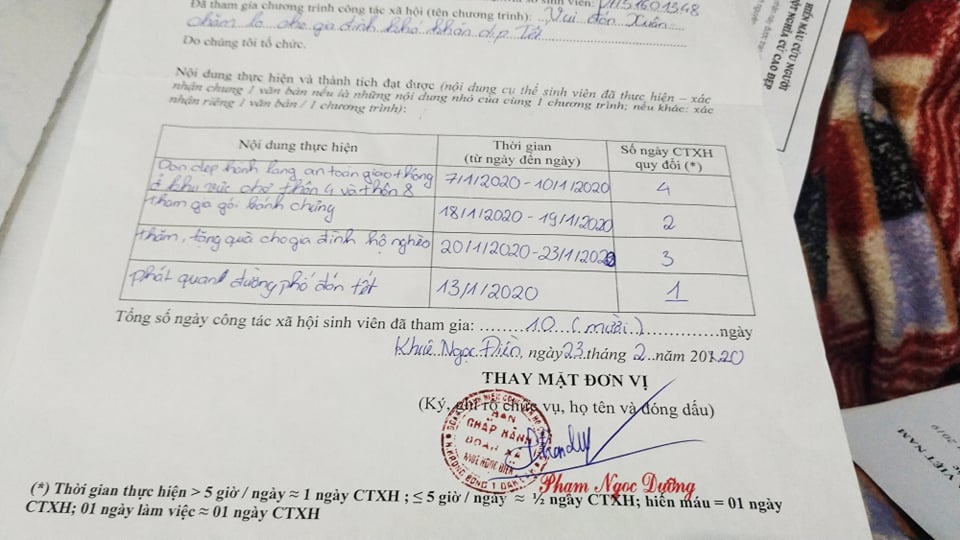 Đã tham gia chương trình công tác xã hội (tên chương trình): ..Vui đón Xuân...
chăm lo cho gia đình khó khăn dịp Tết
Do chúng tôi tổ chức.
Nội dung thực hiện và thành tích đạt được (nội dung cụ thể sinh viên đã thực hiện – xác
nhận chung 1 văn bản nếu là những nội dung nhỏ của cùng 1 chương trình; nếu khác: xác
nhận riêng 1 văn bản / 1 chương trình):
Nội dung thực hiện
Thời gian
(từ ngày đến ngày)
Số ngày CTXH
quy đổi (*)
Dọn dẹp hành lang an toàn giao thông
ở khu vực chợ thôn 4 và thôn 8
7/1/2020 - 10/1/2020
4
tham gia gói bánh chưng
18/1/2020 - 19/1/2020
2
thăm, tặng quà cho gia đình hộ nghèo
20/1/2020 - 23/1/2020
3
phát quang đường phố đón tết
13/1/2020
1
Tổng số ngày công tác xã hội sinh viên đã tham gia: ........10 (mười)................ngày
Khuê Ngọc Điền, ngày 23 tháng 2 năm 2020
THAY MẶT ĐƠN VỊ
(Ký, ghi rõ chức vụ, họ tên và đóng dấu)
BAN
CHẤP HÀNH
ĐOÀN XÃ
Phạm Ngọc Dưỡng
(*) Thời gian thực hiện > 5 giờ / ngày ≈ 1 ngày CTXH ; ≤ 5 giờ / ngày ≈ ½ ngày CTXH; hiến máu = 01 ngày
CTXH; 01 ngày làm việc ≈ 01 ngày CTXH
HIẾN MÁU CỨU NGƯỜI
NGHĨA CỬ CAO ĐẸP
VIỆT NAM
2019